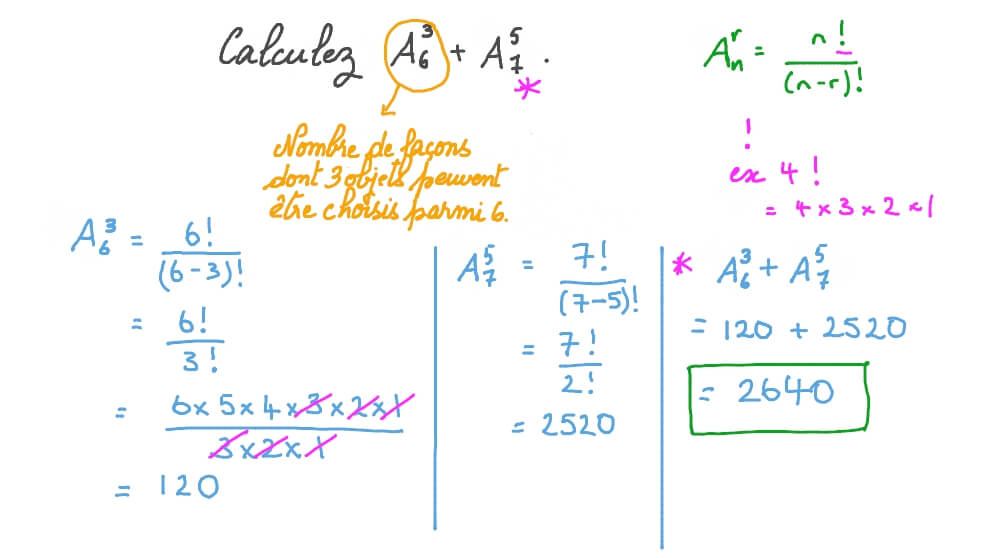 Calculez A₆³ + A₇⁵ .
*
Nombre de façons
dont 3 objets peuvent
être choisis parmi 6.
Aₙʳ = n! / (n-r)!
!
ex 4 !
= 4 × 3 × 2 × 1
A₆³ = 6! / (6-3)!
= 6! / 3!
= 6 × 5 × 4 × 3 × 2 × 1 / 3 × 2 × 1
= 120
A₇⁵ = 7! / (7-5)!
= 7! / 2!
= 2520
* A₆³ + A₇⁵
= 120 + 2520
= 2640